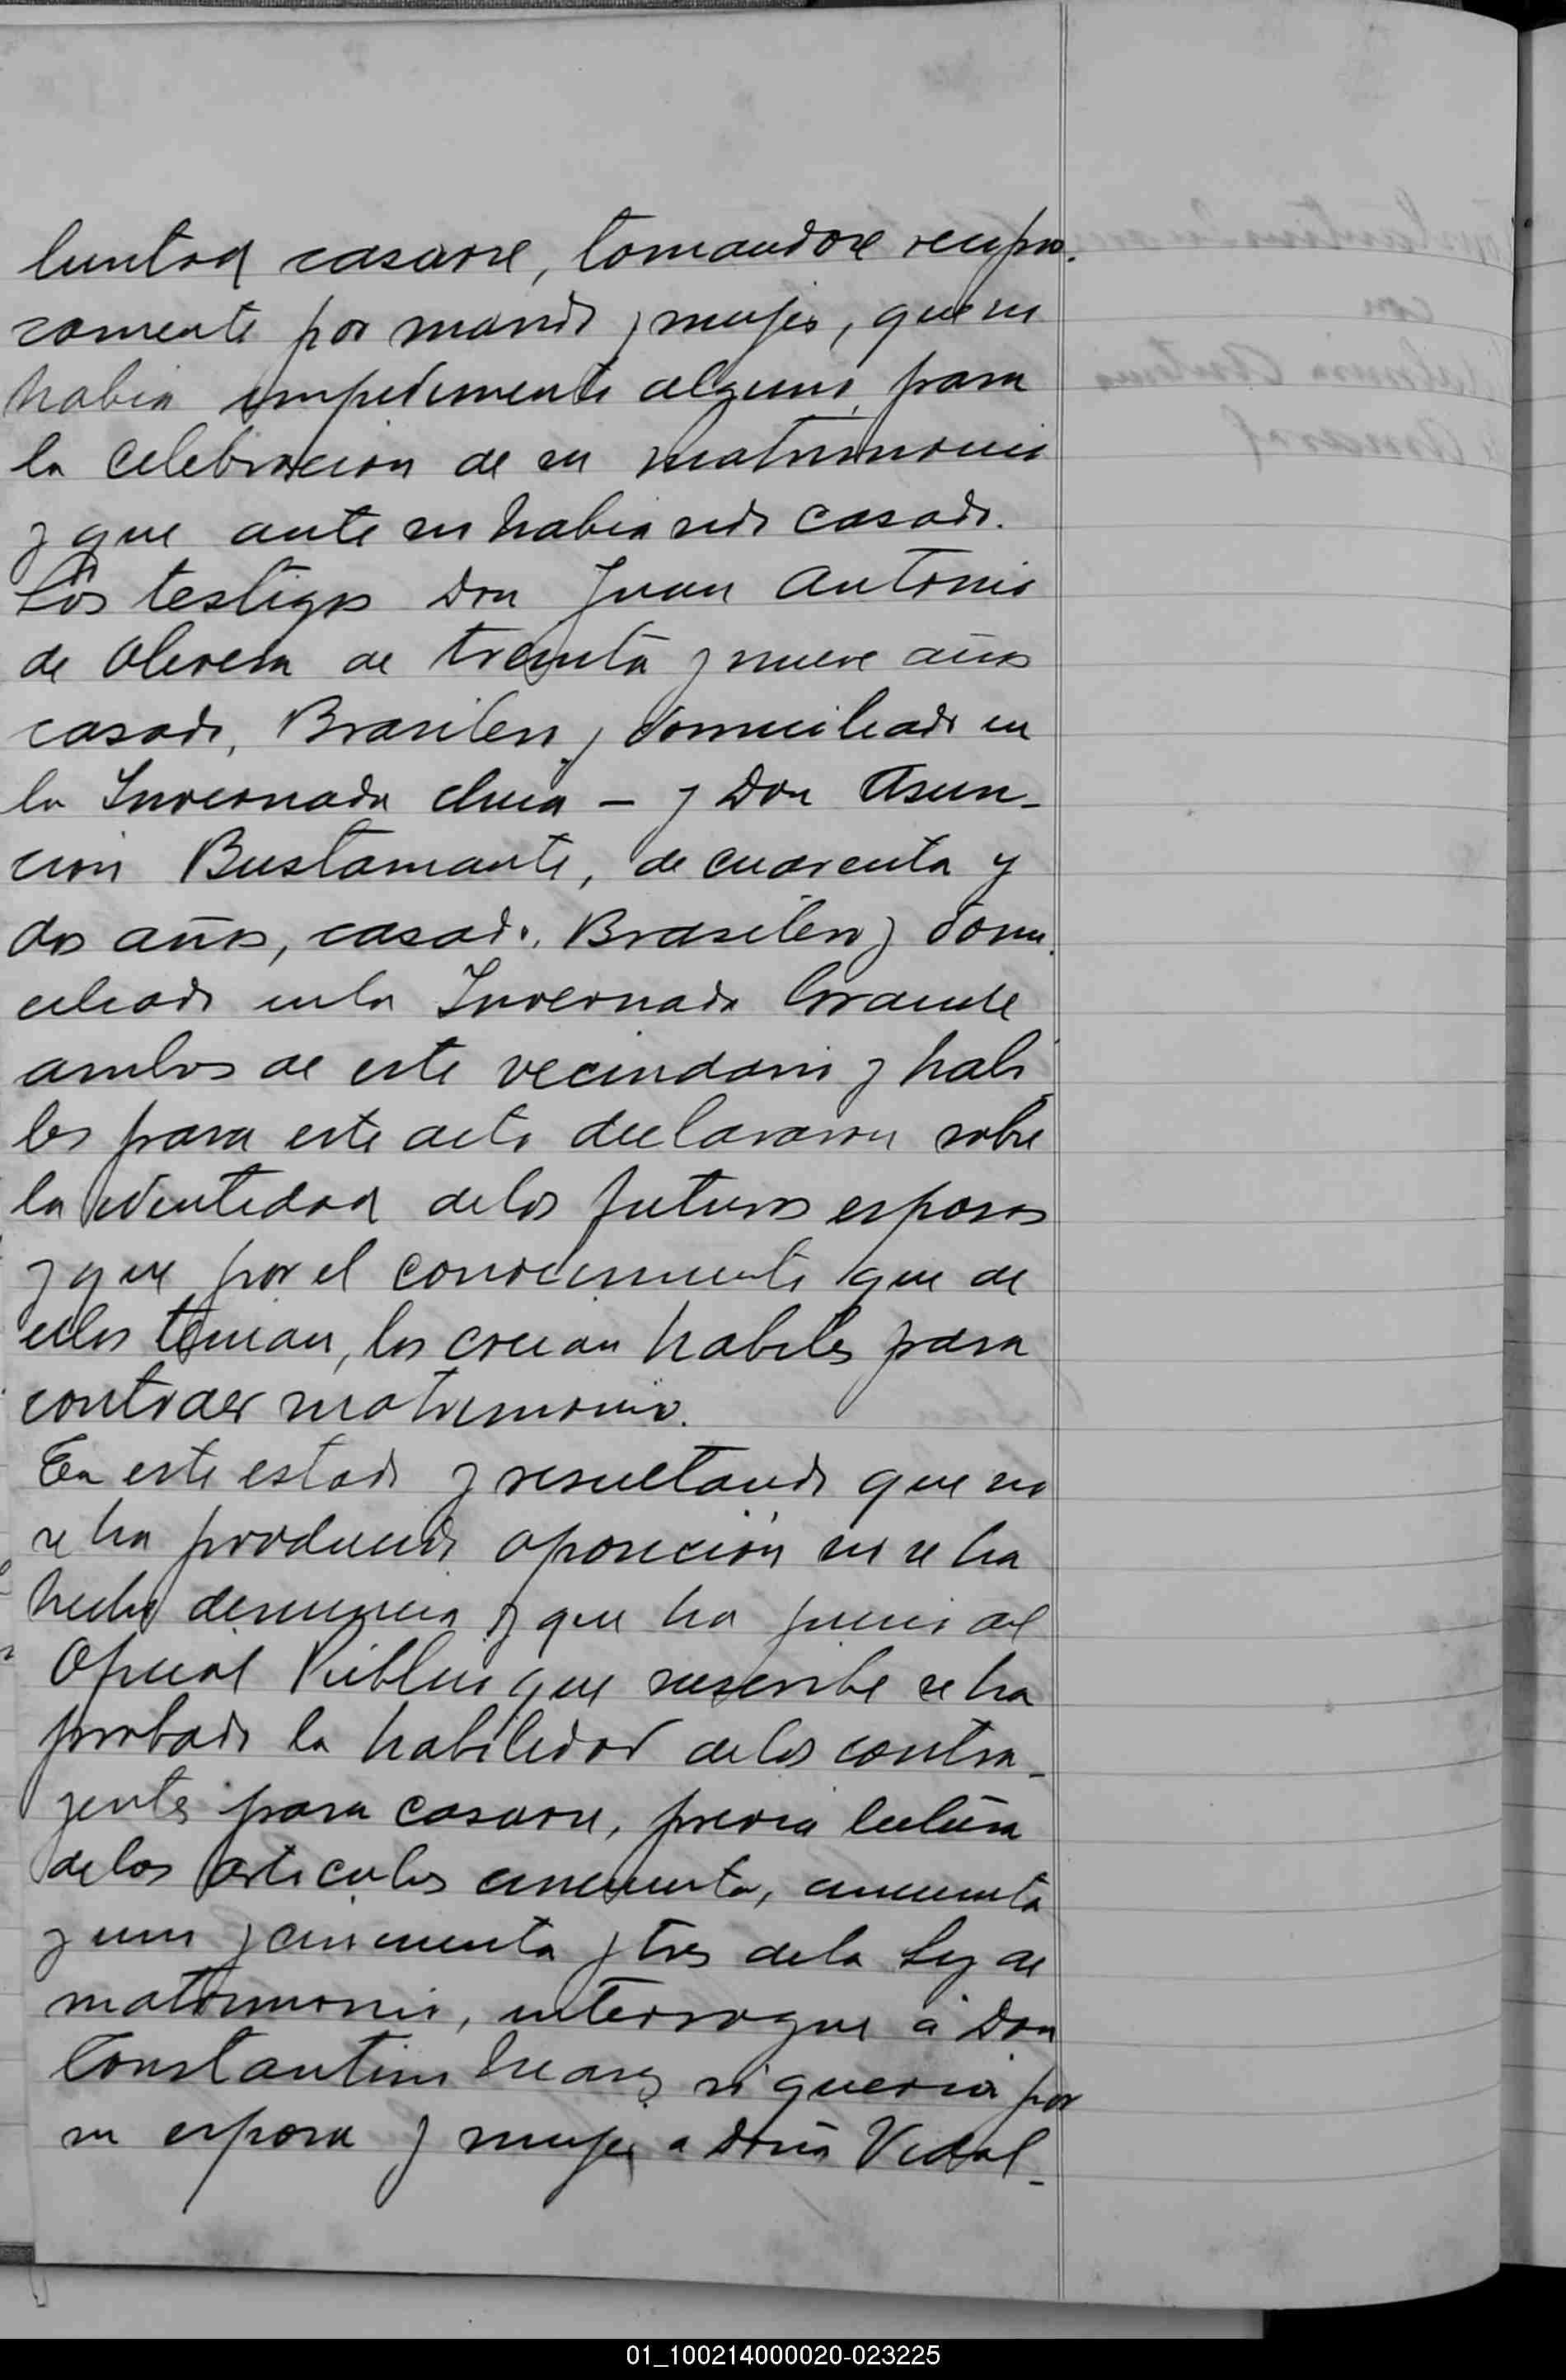 luntad casarse, tomandose recipro-
camente por marido y mujer, que no
habia impedimento alguno, para
la celebracion de su matrimonio
y que ante no habia sido casado.
Los testigos Don Juan Antonio
de Olivera de treinta y nueve años
casado, Brasilero y domiciliado en
la Invernada chica - y Don Asun-
cion Bustamante, de cuarenta y
dos años, casado, Brasilero y domi-
ciliado en la Invernada Grande
ambos de este vecindario y habi-
les para este acto declararon sobre
la identidad de los futuros esposos
y que por el conocimiento que de
ellos tenian, los creian habiles para
contraer matrimonio.
En este estado y resultando que no
se ha producido oposicion ni se ha
hecho denuncia y que ha juicio del
Oficial Publico que suscribe se ha
probado la habilidad de los contra-
yentes para casarse, previa lectura
de los articulos cincuenta, cincuenta
y uno y cincuenta y tres de la Ley de
matrimonio, interrogue á Don
Constantino si queria por
su esposa y mujer a Doña Vidal-
con
01_100214000020-023225